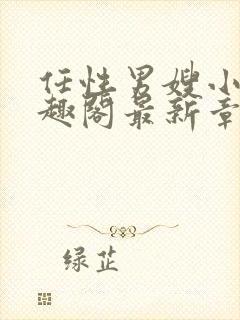 任性男嫂小
趣阁最新章
绿芷